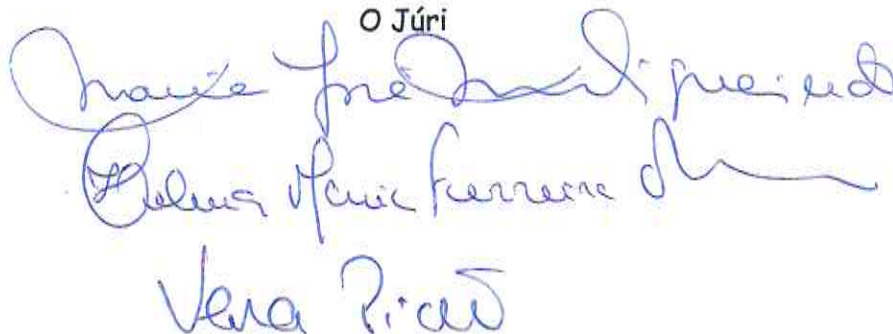 O Júri
Maria José Figueiredo
Maria Ferreira
Vera Picão